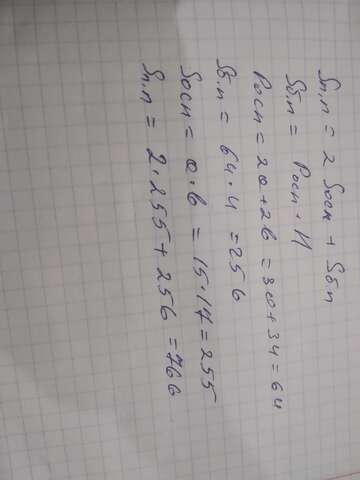 Sп.п = 2 Sосн + Sб.п
Sб.п = Pосн · H
Pосн = 2a+2b = 30+34 = 64
Sб.п = 64·4 = 256
Sосн = a·b = 15·17 = 255
Sп.п = 2·255 + 256 = 766